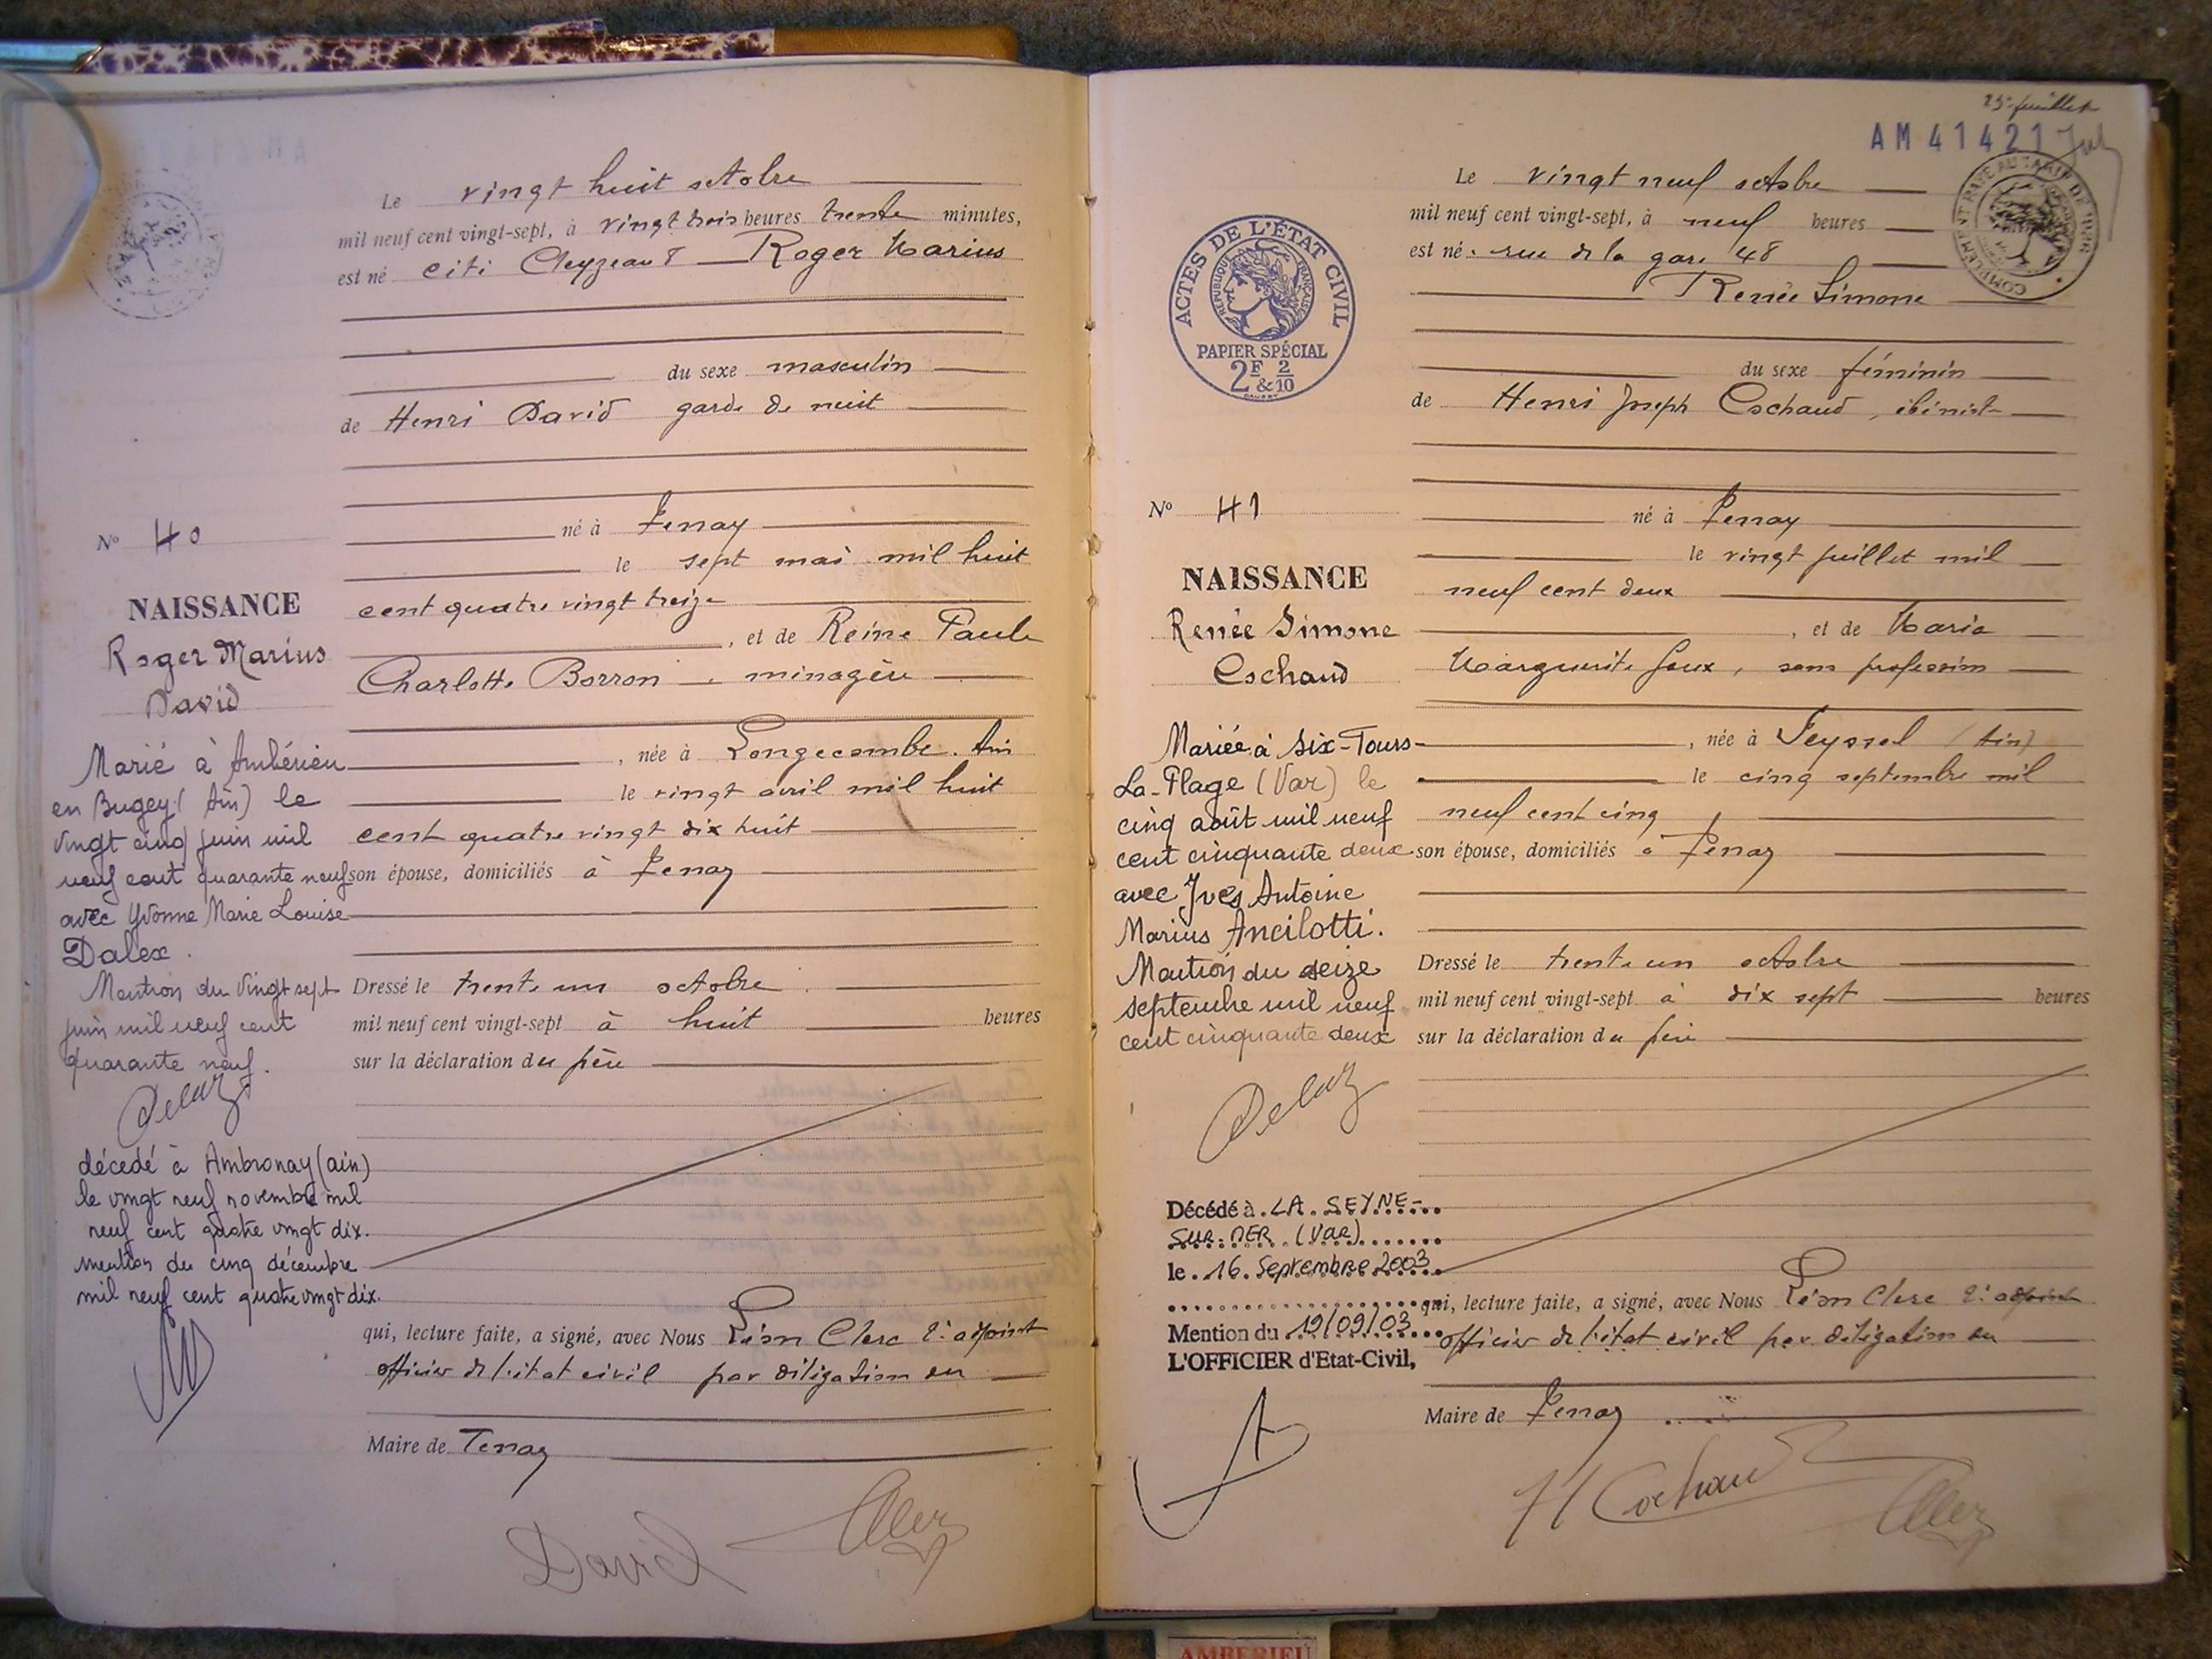 Le vingt huit octobre
mil neuf cent vingt-sept, à vingt trois heures trente minutes,
est né citi Cleyzeau T Roger Marius
du sexe masculin
de Henri David garde de nuit
né à Tenay
le sept mai mil huit
cent quatre vingt treize
, et de Reine Paule
Charlotte Borron ménagère
, née à Longecombe. Ain
le vingt avril mil huit
cent quatre vingt dix huit
son épouse, domiciliés à Tenay
Dressé le trente un octobre
mil neuf cent vingt-sept à huit heures
sur la déclaration du père
qui, lecture faite, a signé, avec Nous Léon Clerc 2e adjoint
officier de l'état civil par délégation du
Maire de Tenay
David
Clerc
N° 40
NAISSANCE
Roger Marius
David
Marié à Ambérieu
en Bugey (Ain) le
vingt cinq juin mil
neuf cent quarante neuf
avec Yvonne Marie Louise
Dalex.
Mention du vingt sept
juin mil neuf cent
quarante neuf.
Delaz
décédé à Ambronay (ain)
le vingt neuf novembre mil
neuf cent quatre vingt dix.
mention du cinq décembre
mil neuf cent quatre vingt dix.
25e feuillet
AM 41421
Le vingt neuf octobre
mil neuf cent vingt-sept, à neuf heures
est né. rue de la gare 48
Renée Simone
du sexe féminin
de Henri Joseph Eschaud, ébéniste
né à Tenay
le vingt juillet mil
neuf cent deux
, et de Maria
Marguerite Joux, sans profession
, née à Seyssel (Ain)
le cinq septembre mil
neuf cent cinq
son épouse, domiciliés à Tenay
Dressé le trente un octobre
mil neuf cent vingt-sept à dix sept heures
sur la déclaration du père
qui, lecture faite, a signé, avec Nous Léon Clerc 2e adjoint
officier de l'état civil par délégation du
Maire de Tenay
H Eschaud
Clerc
ACTES DE L'ÉTAT CIVIL
RÉPUBLIQUE FRANÇAISE
PAPIER SPÉCIAL
2F & 2/10
N° 41
NAISSANCE
Renée Simone
Eschaud
Mariée à Six-Fours-
La-Plage (Var) le
cinq août mil neuf
cent cinquante deux
avec Yves Antoine
Marius Ancilotti.
Mention du seize
septembre mil neuf
cent cinquante deux
Delaz
Décédé à LA SEYNE-
SUR-MER (VAR)
le 16 Septembre 2003
Mention du 19/09/03
L'OFFICIER d'Etat-Civil,
AMBERIEU